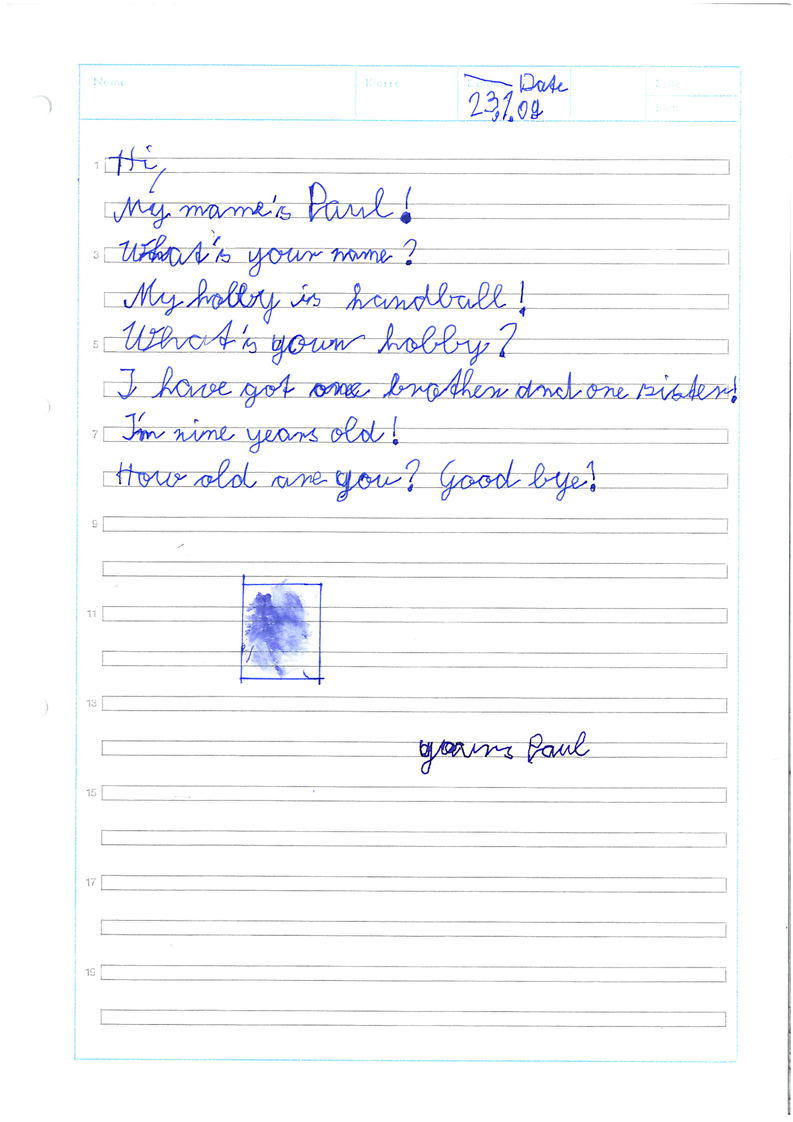 Name Klasse Date
23.1.09
1 Hi,
My name's Paul!
3 What's your name?
My hobby is handball!
5 What's your hobby?
I have got one brother and one sister!
7 I'm nine years old!
How old are you? Good bye!
9
11
13
yours Paul
15
17
19